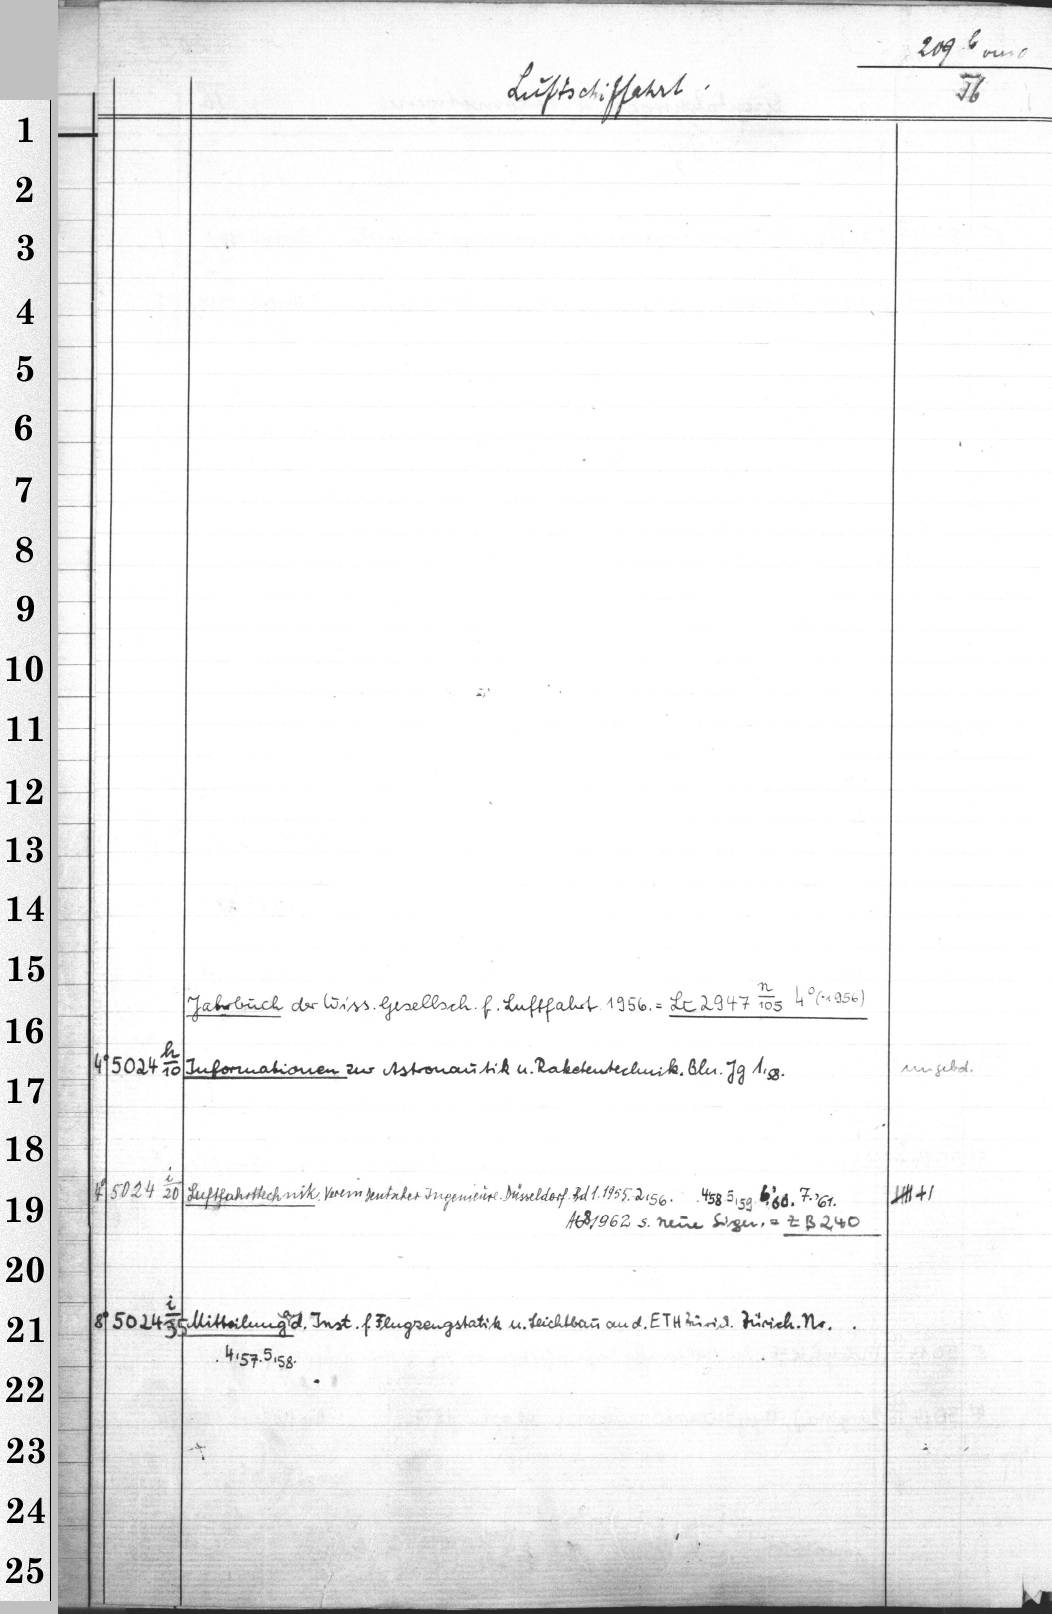 209 b
Luftschiffahrt.
Tb
1
2
3
4
5
6
7
8
9
10
11
12
13
14
15
Jahrbuch der Wiss. Gesellsch. f. Luftfahrt 1956. = Lc 2947 n/105 4° (1956)
16
4° 5024 h/10 Informationen zur Astronautik u. Raketentechnik. Bln. Jg 1,58. ungebd.
17
18
4° 5024 i/20 Luftfahrttechnik. Verein Deutscher Ingenieure. Düsseldorf. Bd 1.1955. 2,56. 4,58 5,59 6,60. 7.,61.
19
Ab 1962 s. neue Sign. = ZB 240
20
8° 5024 i/35 Mitteilung a.d. Inst. f. Flugzeugstatik u. Leichtbau an d. ETH Zürich. Zürich. Nr.
21
4,57. 5,58.
22
23
24
25